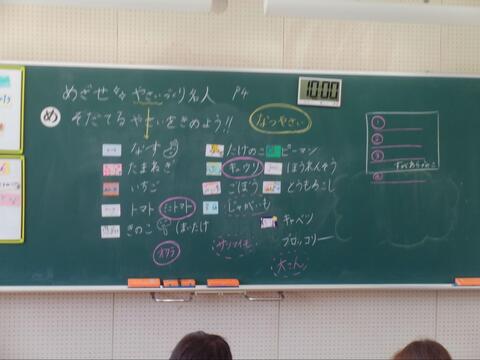 めざせ やさいづくり名人 P4
10:00
め そだてるやさいをきめよう!! なつやさい
なす たけのこ ピーマン
たまねぎ キュウリ ほうれんそう
いちご ごぼう とうもろこし
トマト ミニトマト じゃがいも
きのこ しいたけ キャベツ
オクラ サツマイモ ブロッコリー
大こん
①
②
③
④